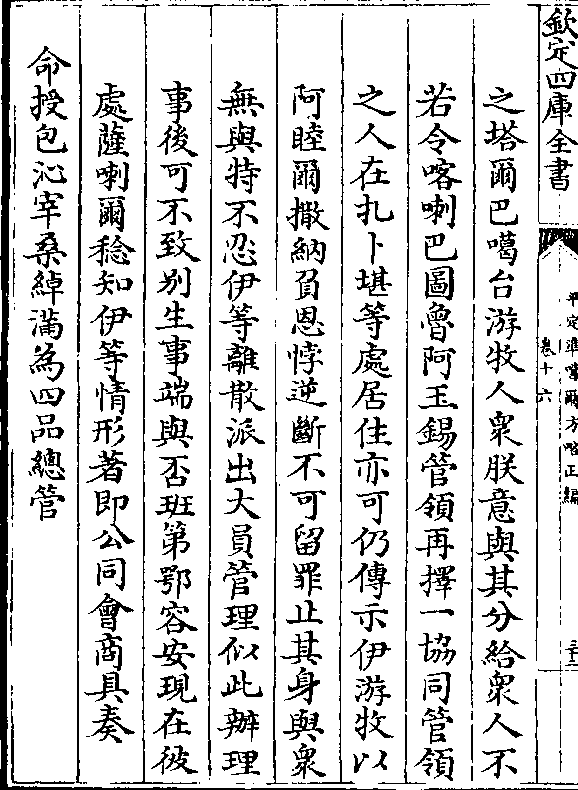 欽定四庫全書
平定準噶爾方略正編
卷十六
之塔爾巴噶台游牧人衆朕意與其分給衆人不
若令喀喇巴圖魯阿玉錫管領再擇一協同管領
之人在扎卜堪等處居住亦可仍傳示伊游牧以
阿睦爾撒納負恩悖逆斷不可留罪止其身與衆
無與特不忍伊等離散派出大員管理似此辦理
事後可不致别生事端與否班第鄂容安現在彼
處薩喇爾稔知伊等情形著即公同會商具奏
命授包沁宰桑綽滿為四品總管